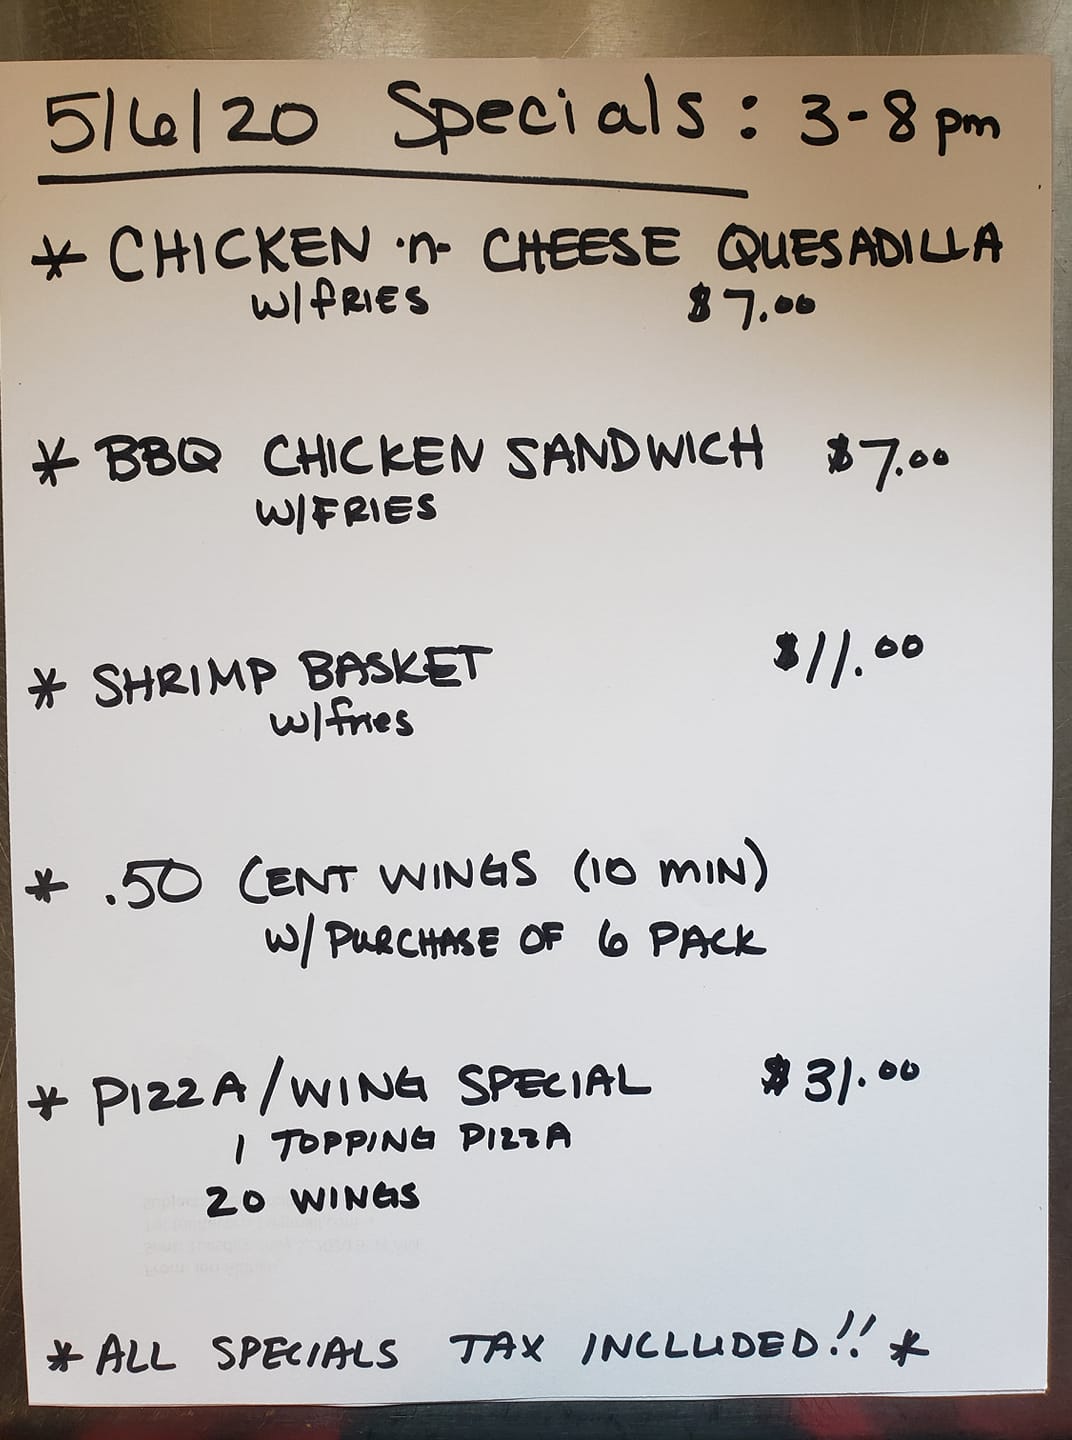 5/6/20 Specials: 3-8pm
* CHICKEN 'n- CHEESE QUESADILLA
w/fRIES $7.00
* BBQ CHICKEN SANDWICH $7.00
W/FRIES
* SHRIMP BASKET $11.00
w/fries
* .50 CENT WINGS (10 MIN)
W/ PURCHASE OF 6 PACK
* PIZZA/WING SPECIAL $31.00
1 TOPPING PIZZA
20 WINGS
* ALL SPECIALS TAX INCLUDED!! *